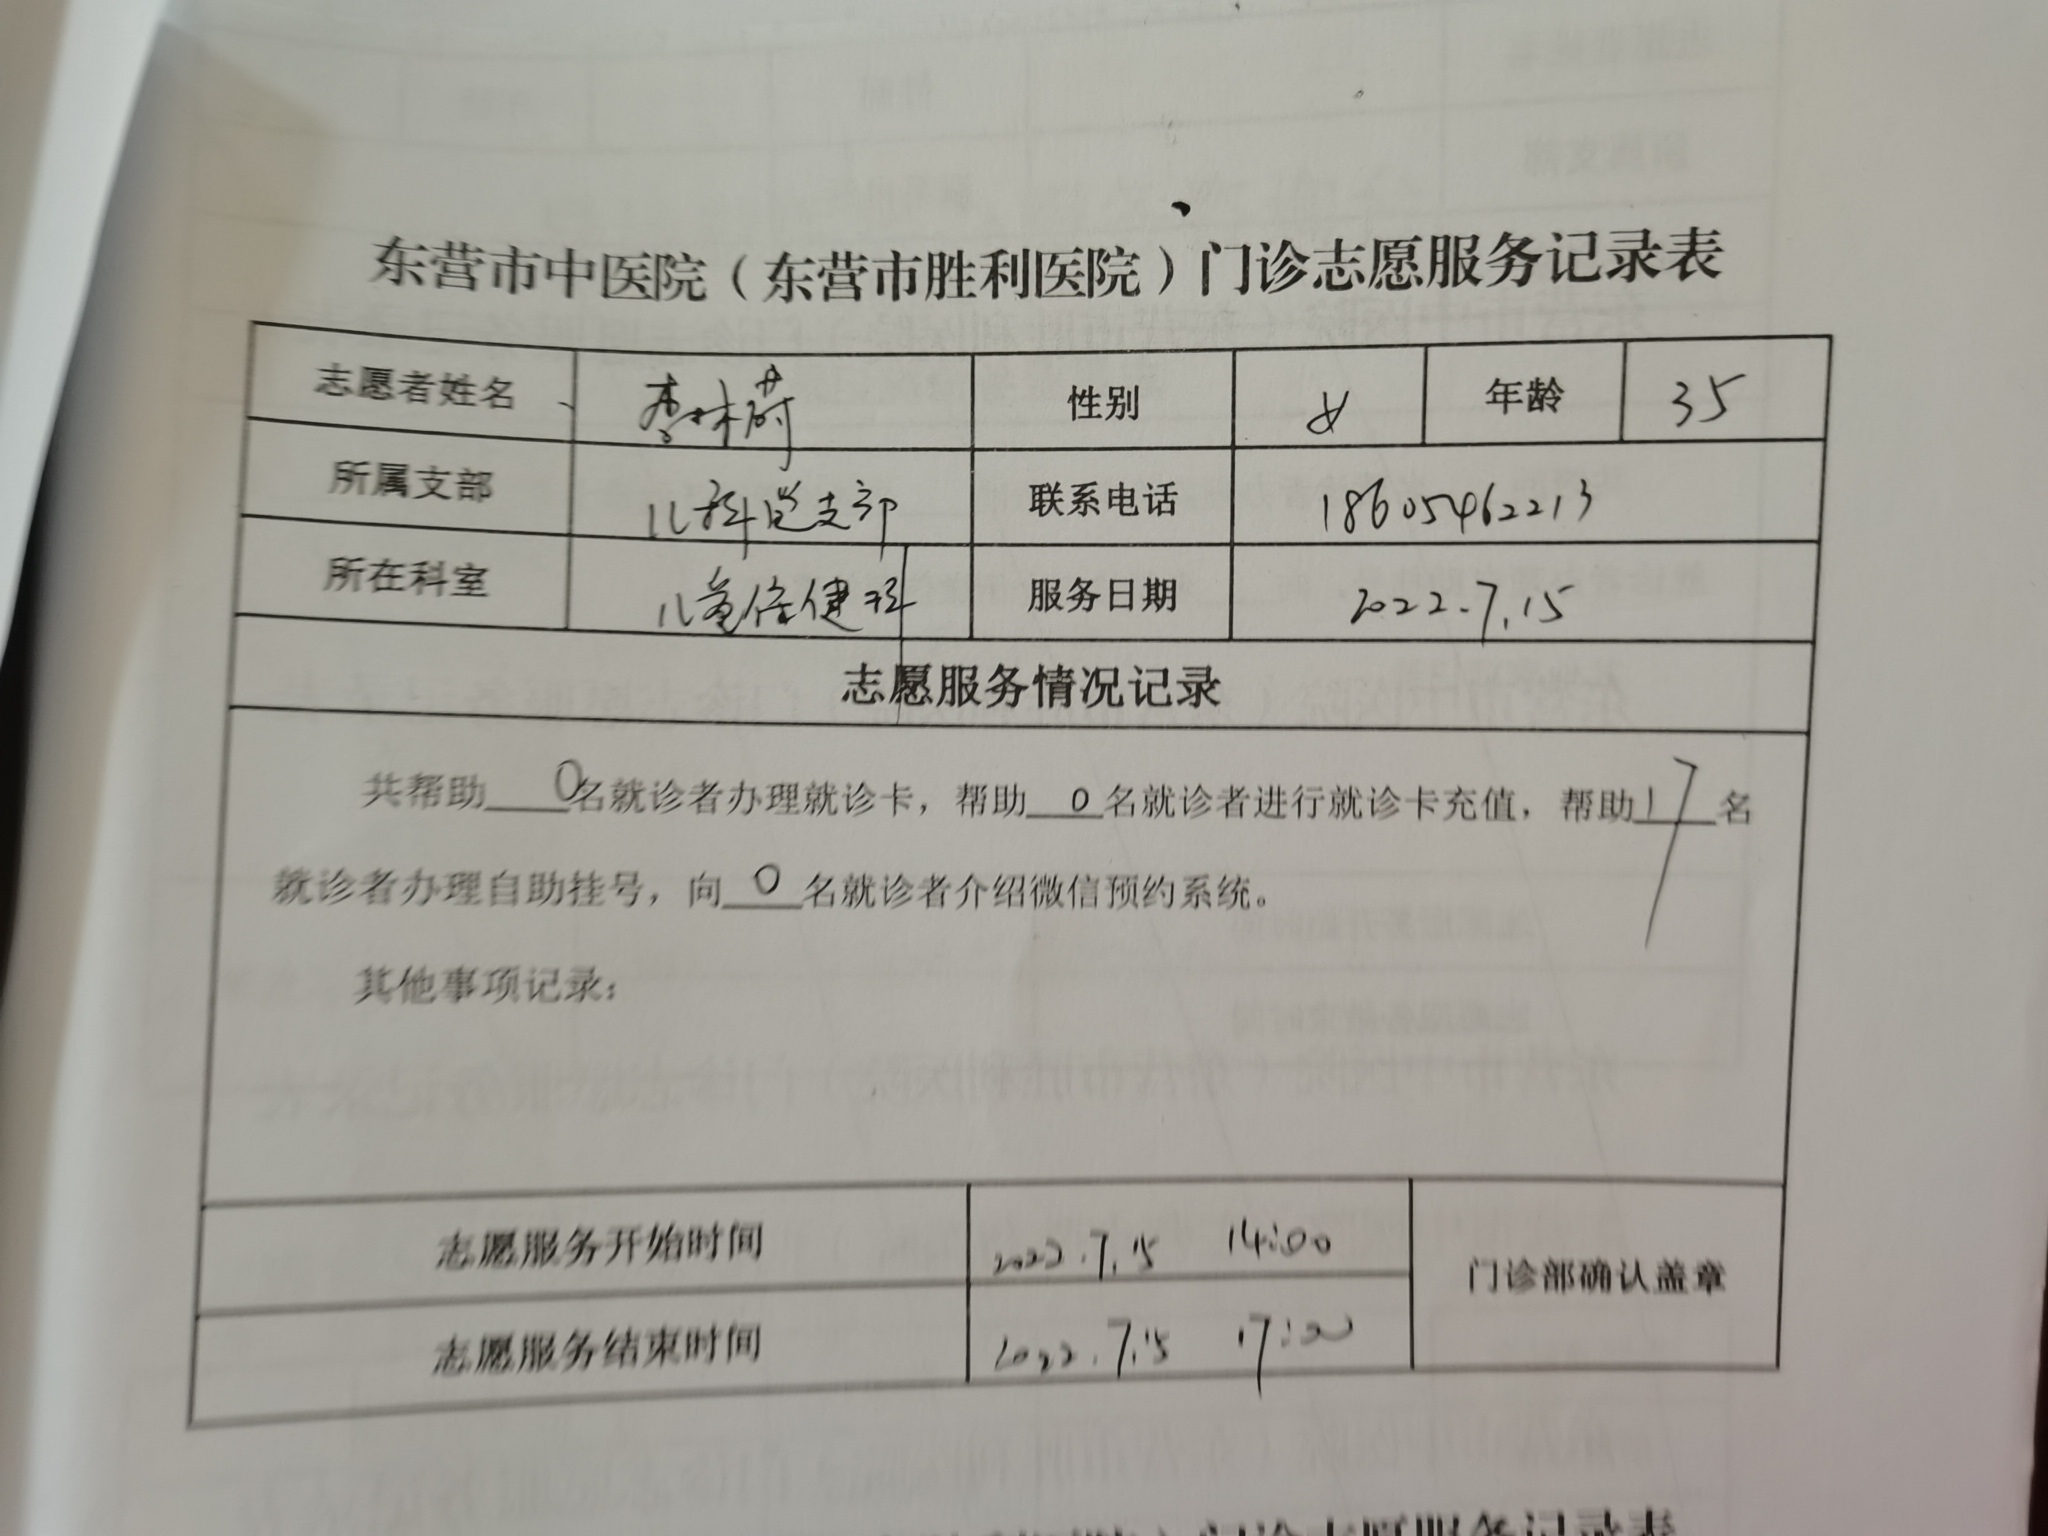 东营市中医院（东营市胜利医院）门诊志愿服务记录表
志愿者姓名 李林蔚 性别 女 年龄 35
所属支部 儿科党支部 联系电话 18605462213
所在科室 儿童保健科 服务日期 2022.7.15
志愿服务情况记录
共帮助0名就诊者办理就诊卡，帮助0名就诊者进行就诊卡充值，帮助17名
就诊者办理自助挂号，向0名就诊者介绍微信预约系统。
其他事项记录：
志愿服务开始时间 2022.7.15 14:00 门诊部确认盖章
志愿服务结束时间 2022.7.15 17:00